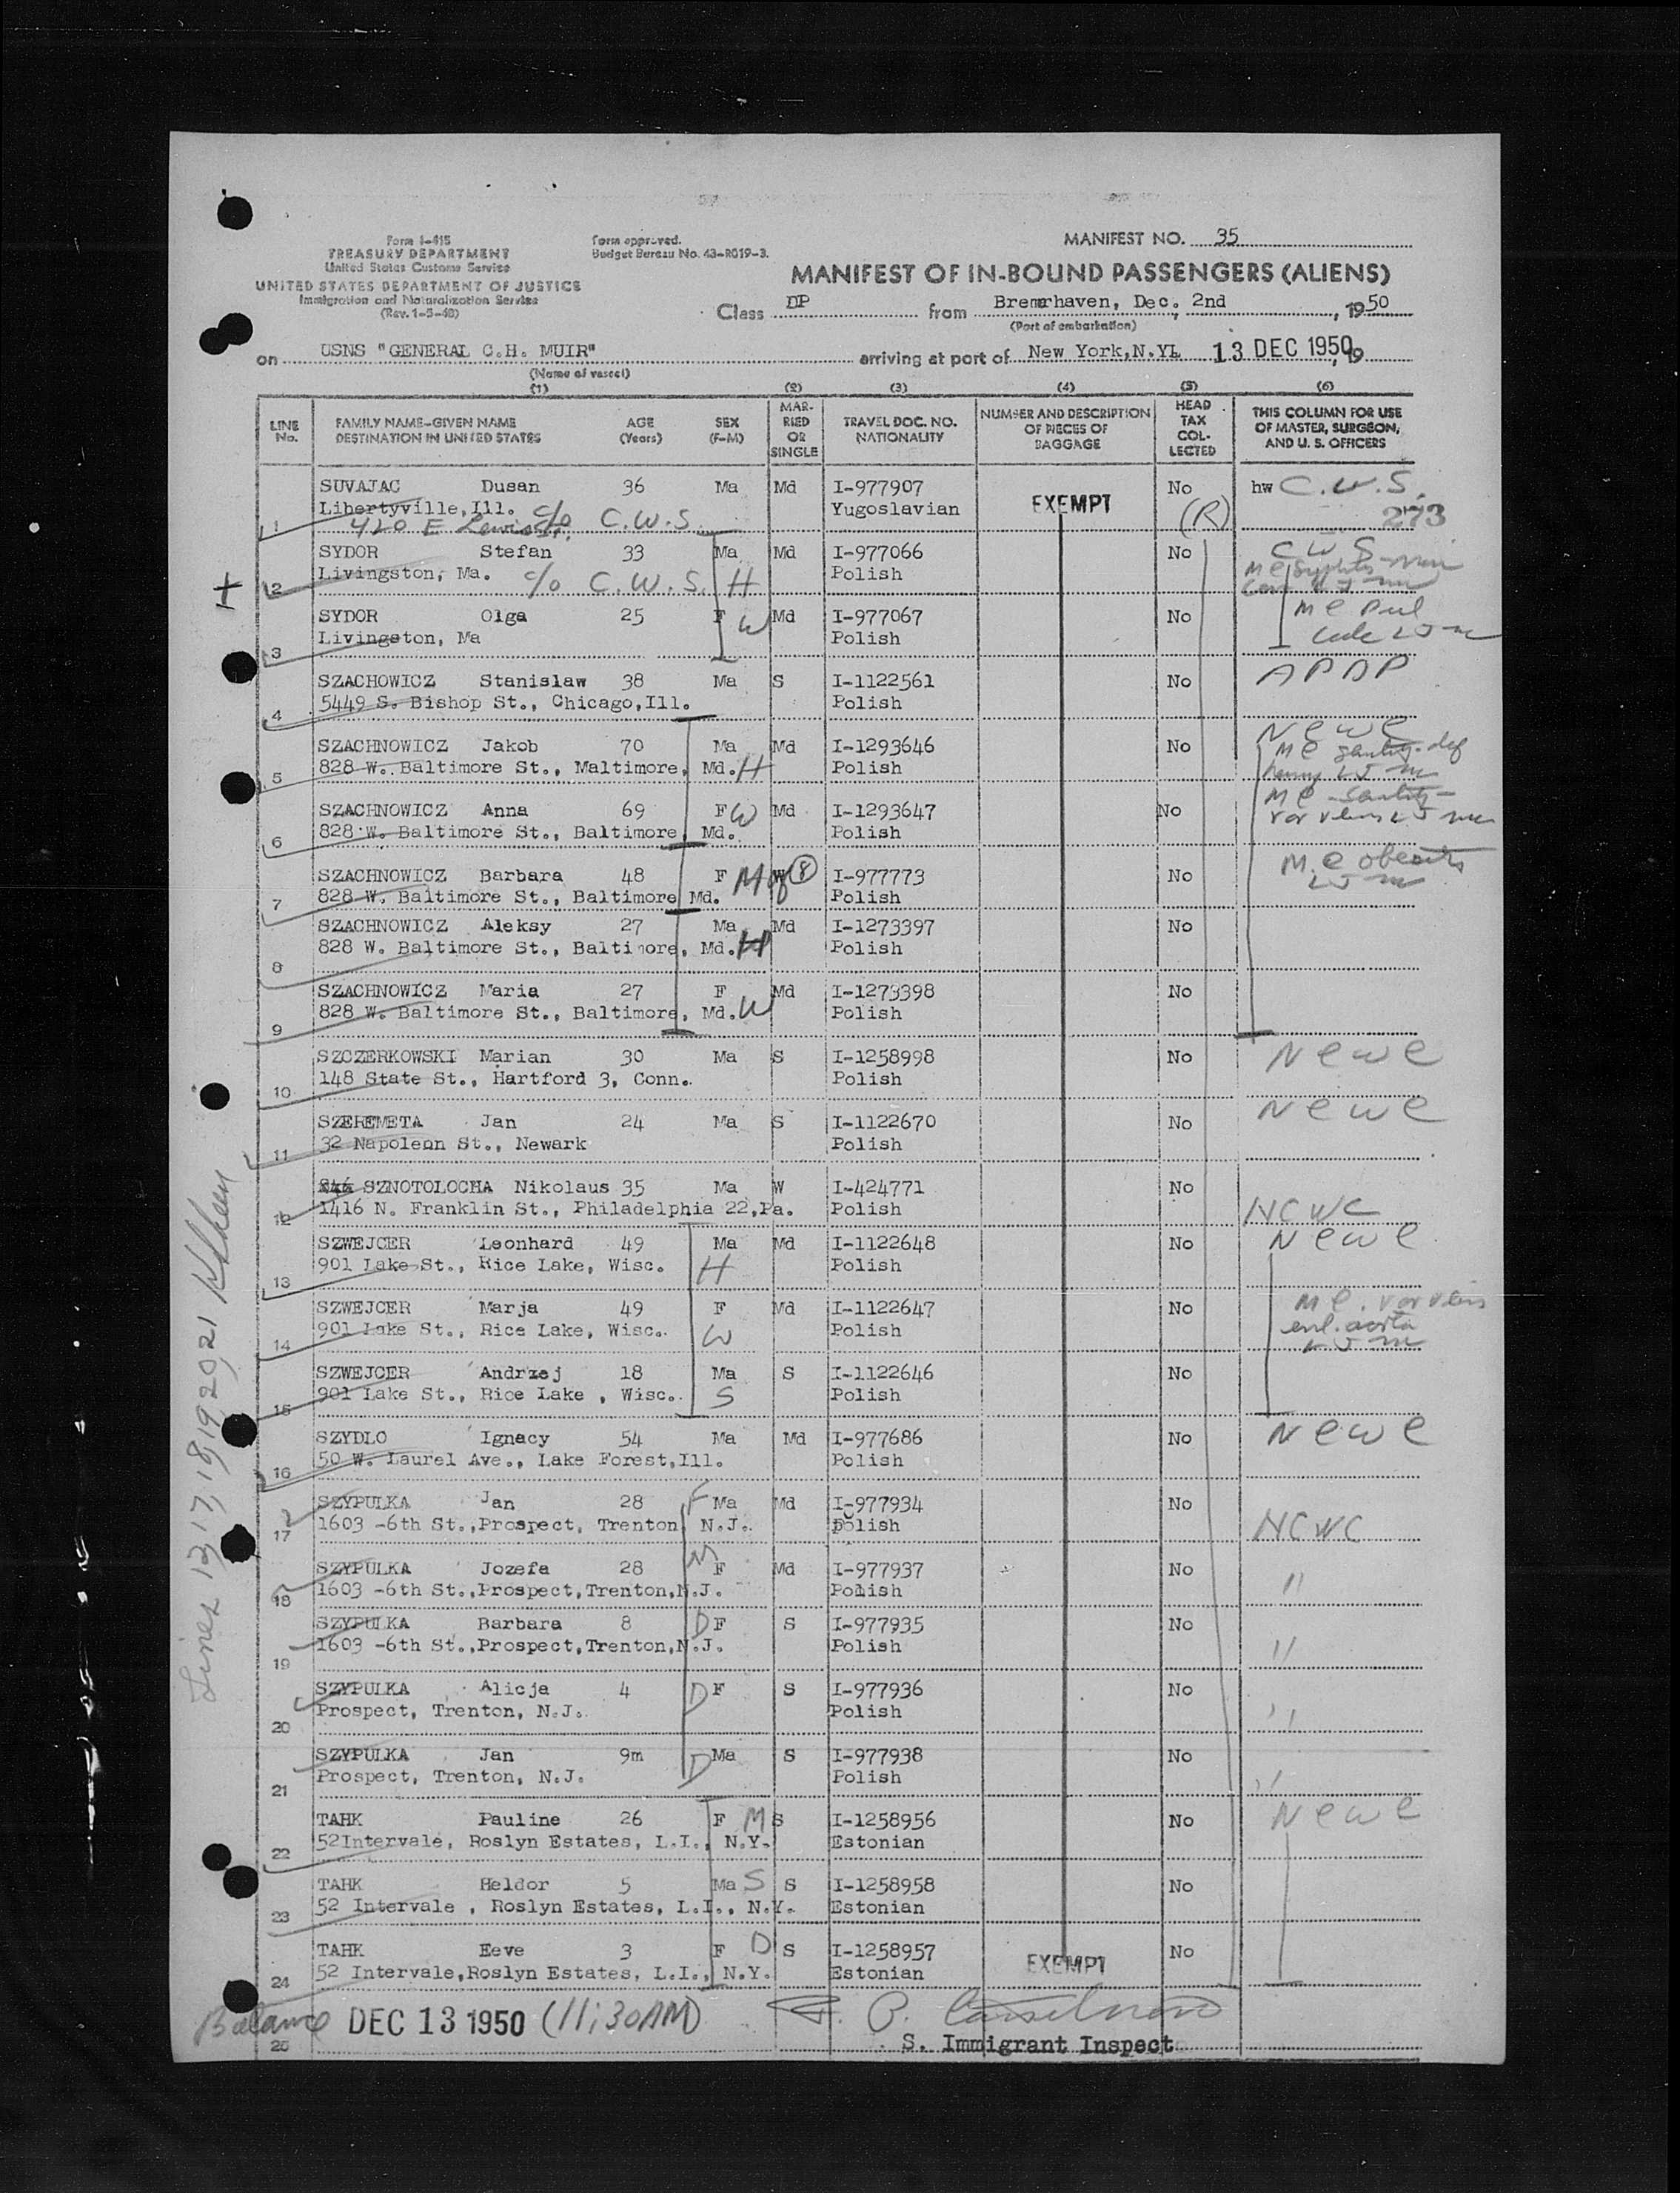 MANIFEST NO. 35
Form I-415
TREASURY DEPARTMENT
United States Customs Service
UNITED STATES DEPARTMENT OF JUSTICE
Immigration and Naturalization Service
(Rev. 1-5-48)
Form approved.
Budget Bureau No. 43-R019-3.
MANIFEST OF IN-BOUND PASSENGERS (ALIENS)
Class DP from Bremerhaven, Dec. 2nd, 1950
(Port of embarkation)
on USNS "GENERAL C.H. MUIR" arriving at port of New York,N.Y. 13 DEC 1950, 19
(Name of vessel)
(1) (2) (3) (4) (5) (6)
LINE No. FAMILY NAME-GIVEN NAME DESTINATION IN UNITED STATES AGE (Years) SEX (F-M) MARRIED OR SINGLE TRAVEL DOC. NO. NATIONALITY NUMBER AND DESCRIPTION OF PIECES OF BAGGAGE HEAD TAX COLLECTED THIS COLUMN FOR USE OF MASTER, SURGEON, AND U. S. OFFICERS
SUVAJAC Dusan 36 Ma Md I-977907 EXEMPT No hw C.W.S.
Libertyville,Ill. c/o C.W.S. Yugoslavian (R) 273
1 420 E Lewis St.
SYDOR Stefan 33 Ma Md I-977066 No C W S
2 Livingston, Ma. c/o C.W.S. H Polish
SYDOR Olga 25 F W Md I-977067 No
3 Livingston, Ma Polish
SZACHOWICZ Stanislaw 38 Ma S I-1122561 No APDP
4 5449 S. Bishop St., Chicago,Ill. Polish
SZACHNOWICZ Jakob 70 Ma Md I-1293646 No NCWC
5 828 W. Baltimore St., Maltimore, Md. H Polish
SZACHNOWICZ Anna 69 F W Md I-1293647 No
6 828 W. Baltimore St., Baltimore, Md. Polish
SZACHNOWICZ Barbara 48 F W I-977773 No M.C obesity
7 828 W. Baltimore St., Baltimore Md. M of 8 Polish
SZACHNOWICZ Aleksy 27 Ma Md I-1273397 No
8 828 W. Baltimore St., Baltimore, Md. H Polish
SZACHNOWICZ Maria 27 F Md I-1273398 No
9 828 W. Baltimore St., Baltimore, Md. W Polish
SZCZERKOWSKI Marian 30 Ma S I-1258998 No NCWC
10 148 State St., Hartford 3, Conn. Polish
SZEREMETA Jan 24 Ma S I-1122670 No NCWC
11 32 Napolenn St., Newark Polish
SZNOTOLOCHA Nikolaus 35 Ma W I-424771 No
12 1416 N. Franklin St., Philadelphia 22,Pa. Polish NCWC
SZWEJCER Leonhard 49 Ma Md I-1122648 No NCWC
13 901 Lake St., Rice Lake, Wisc. H Polish
SZWEJCER Marja 49 F Md I-1122647 No M C. var veins
14 901 Lake St., Rice Lake, Wisc. W Polish enl. aorta
SZWEJCER Andrzej 18 Ma S I-1122646 No
15 901 Lake St., Rice Lake , Wisc. S Polish
SZYDLO Ignacy 54 Ma Md I-977686 No NCWC
16 50 W. Laurel Ave., Lake Forest,Ill. Polish
SZYPULKA Jan 28 F Ma Md I-977934 No
17 1603 -6th St.,Prospect, Trenton N.J. Polish NCWC
SZYPULKA Jozefa 28 M F Md I-977937 No
18 1603 -6th St.,Prospect,Trenton,N.J. Polish "
SZYPULKA Barbara 8 D F S I-977935 No
19 1603 -6th St.,Prospect,Trenton,N.J. Polish "
SZYPULKA Alicja 4 D F S I-977936 No
20 Prospect, Trenton, N.J. Polish "
SZYPULKA Jan 9m D Ma S I-977938 No
21 Prospect, Trenton, N.J. Polish "
TAHK Pauline 26 F M S I-1258956 No NCWC
22 52Intervale, Roslyn Estates, L.I., N.Y. Estonian
TAHK Heldor 5 Ma S S I-1258958 No
23 52 Intervale , Roslyn Estates, L.I., N.Y. Estonian
TAHK Eeve 3 F D S I-1258957 EXEMPT No
24 52 Intervale,Roslyn Estates, L.I., N.Y. Estonian
Balance DEC 13 1950 (11;30AM)
25 S. Immigrant Inspect
Lines 13, 17, 18, 19, 20, 21